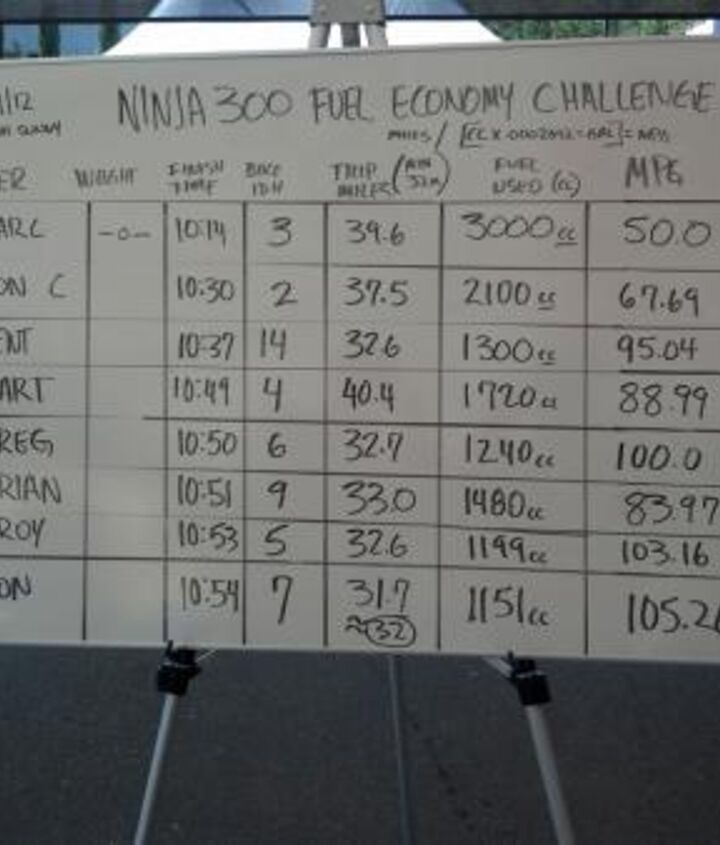 1/12 NINJA 300 FUEL ECONOMY CHALLENGE
SUNNY MILES / [CC X .0002642 = GAL] = MPG
ER WEIGHT FINISH TIME BIKE ID# TRIP MILES (MIN 32m) FUEL USED (cc) MPG
ARC -0- 10:14 3 39.6 3000cc 50.0
ON C 10:30 2 37.5 2100cc 67.69
ENT 10:37 14 32.6 1300cc 95.04
ART 10:49 4 40.4 1720cc 88.99
REG 10:50 6 32.7 1240cc 100.0
RIAN 10:51 9 33.0 1480cc 83.97
ROY 10:53 5 32.6 1199cc 103.16
ON 10:54 7 31.7 1151cc 105.26
≈32